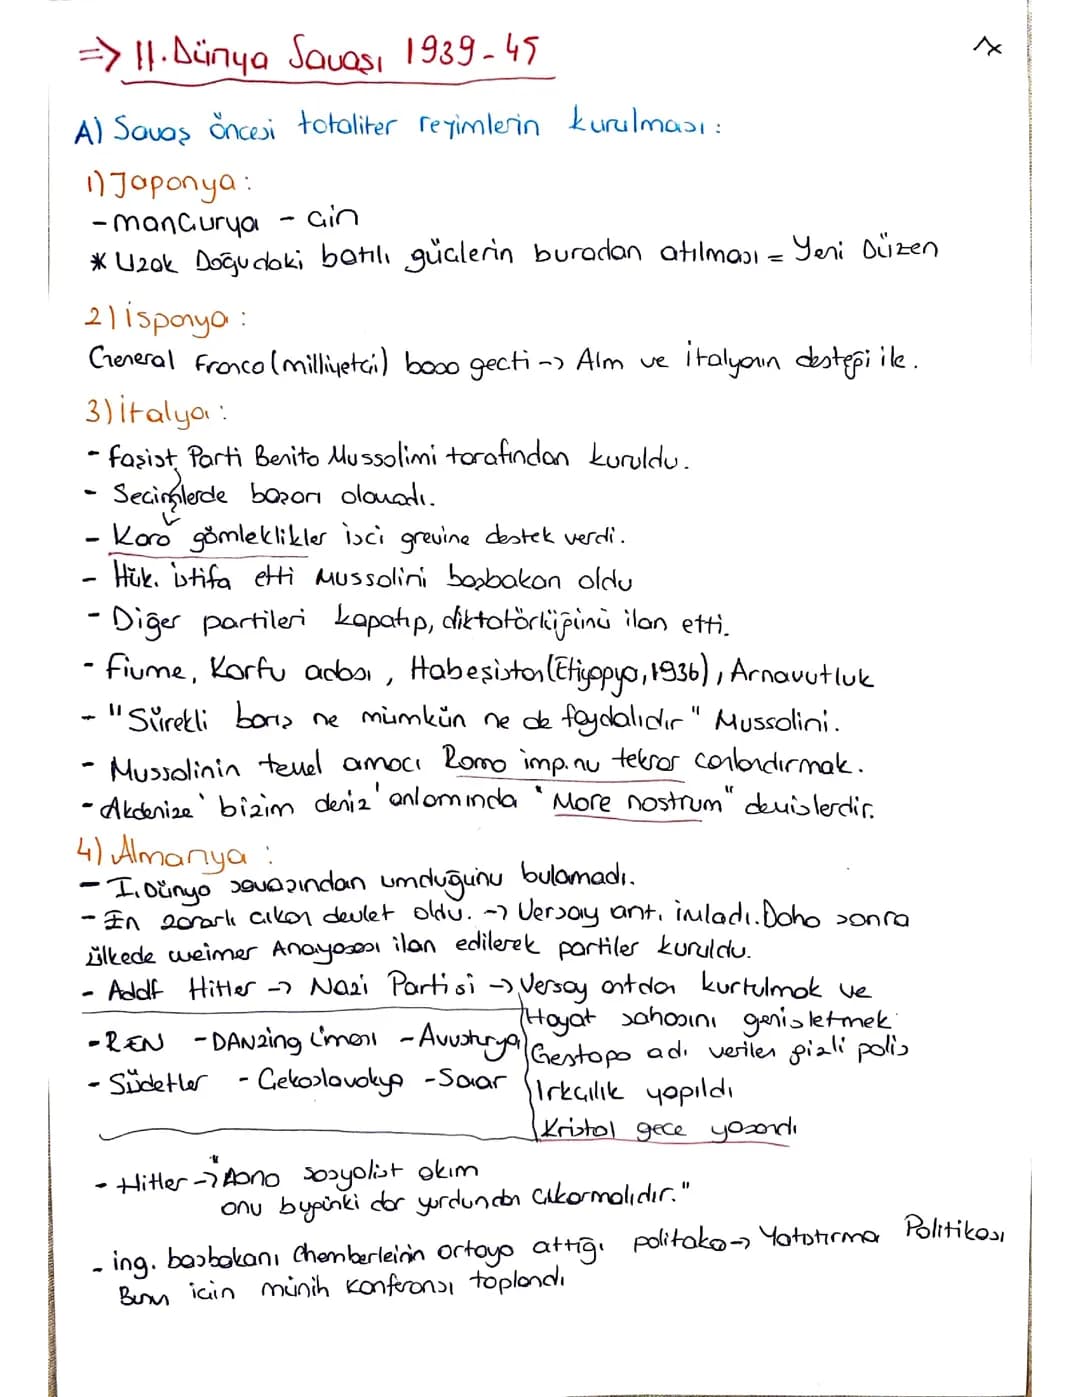 => II. Dünya Savaşı 1939-45
A) Savaş öncesi totaliter rejimlerin kurulması:
1) Japonya:
- mançurya - çin
* Uzak Doğudaki batılı güçlerin buradan atılması = Yeni Düzen
2) İspanya:
General Franco (milliyetçi) başa geçti -> Alm ve İtalyanın desteği ile.
3) İtalya:
- Faşist Parti Benito Mussolimi tarafından kuruldu.
- Seçimlerde başarı olamadı.
- Kara gömleklikler işci grevine destek verdi.
- Hük. istifa etti Mussolini başbakan oldu
- Diğer partileri kapatıp, diktatörlüğünü ilan etti.
- Fiume, Korfu adası, Habeşistan (Etiyopya, 1936), Arnavutluk
- "Sürekli barış ne mümkün ne de faydalıdır" Mussolini.
- Mussolinin temel amacı Roma imp.nu tekrar canlandırmak.
- Akdenize 'bizim deniz' anlamında "More nostrum" demişlerdir.
4) Almanya:
- I. Dünya savaşından umduğunu bulamadı.
- En zararlı çıkan devlet oldu. -> Versay ant. imzaladı. Daha sonra
ülkede weimer Anayasası ilan edilerek partiler kuruldu.
- Addf Hitler -> Nazi Partisi -> Versay antdan kurtulmak ve
Hayat sahasını genişletmek
- REN - DANzing Limanı - Avusturya
Gestapo adı verilen gizli polis
- Südetler - Çekoslavakya - Saar
Irkçılık yapıldı
Kristal gece yaşandı
- Hitler -> "Bana sosyalist akım
onu bugünki dar yurdundan çıkarmalıdır."
- ing. başbakanı Chamberleinin ortaya attığı politaka -> Yatıştırma Politikası
Bunun için münih konferansı toplandı